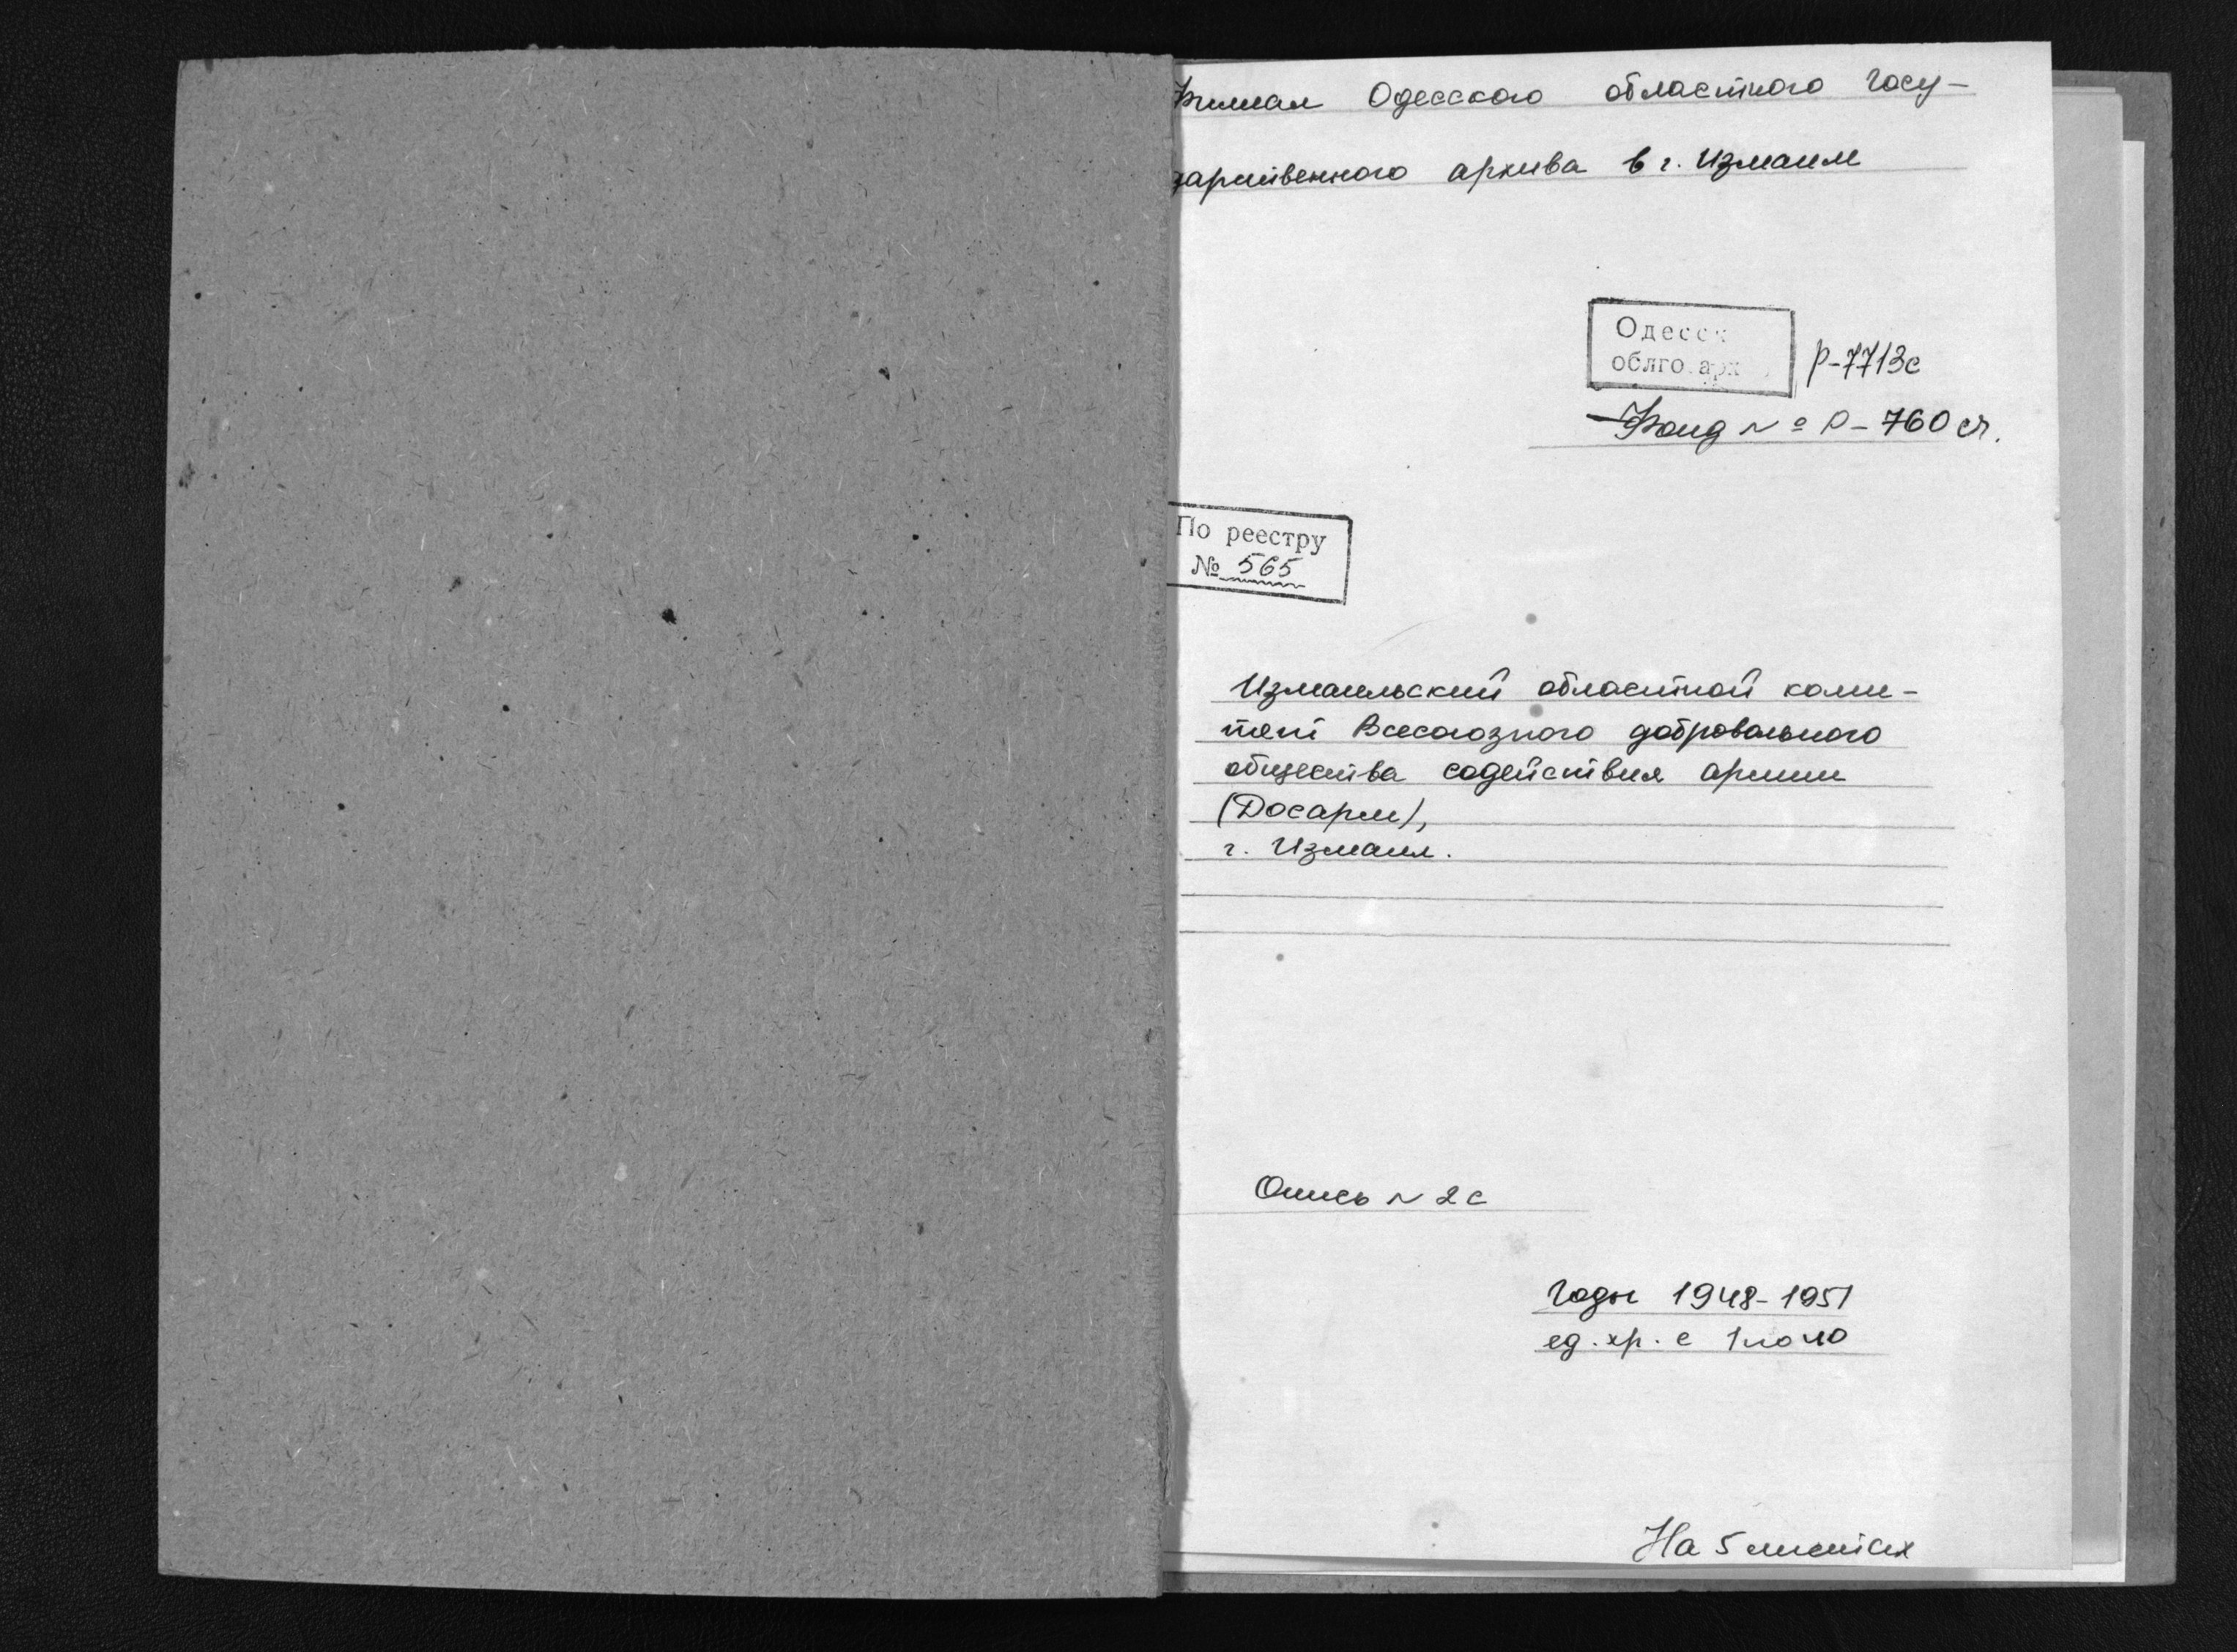 Филиал Одесского областного госу-
дарственного архива в г. Измаиле
Одесск
облго арх
Р-7713с
Фонд № Р-760 сч.
По реестру
№ 565
Измаильский областной коми-
тет Всесоюзного добровольного
общества содействия армии
(Досарм),
г. Измаил.
Опись № 2с
Годы 1948-1951
ед. хр. с 1 по 40
На 5 листах